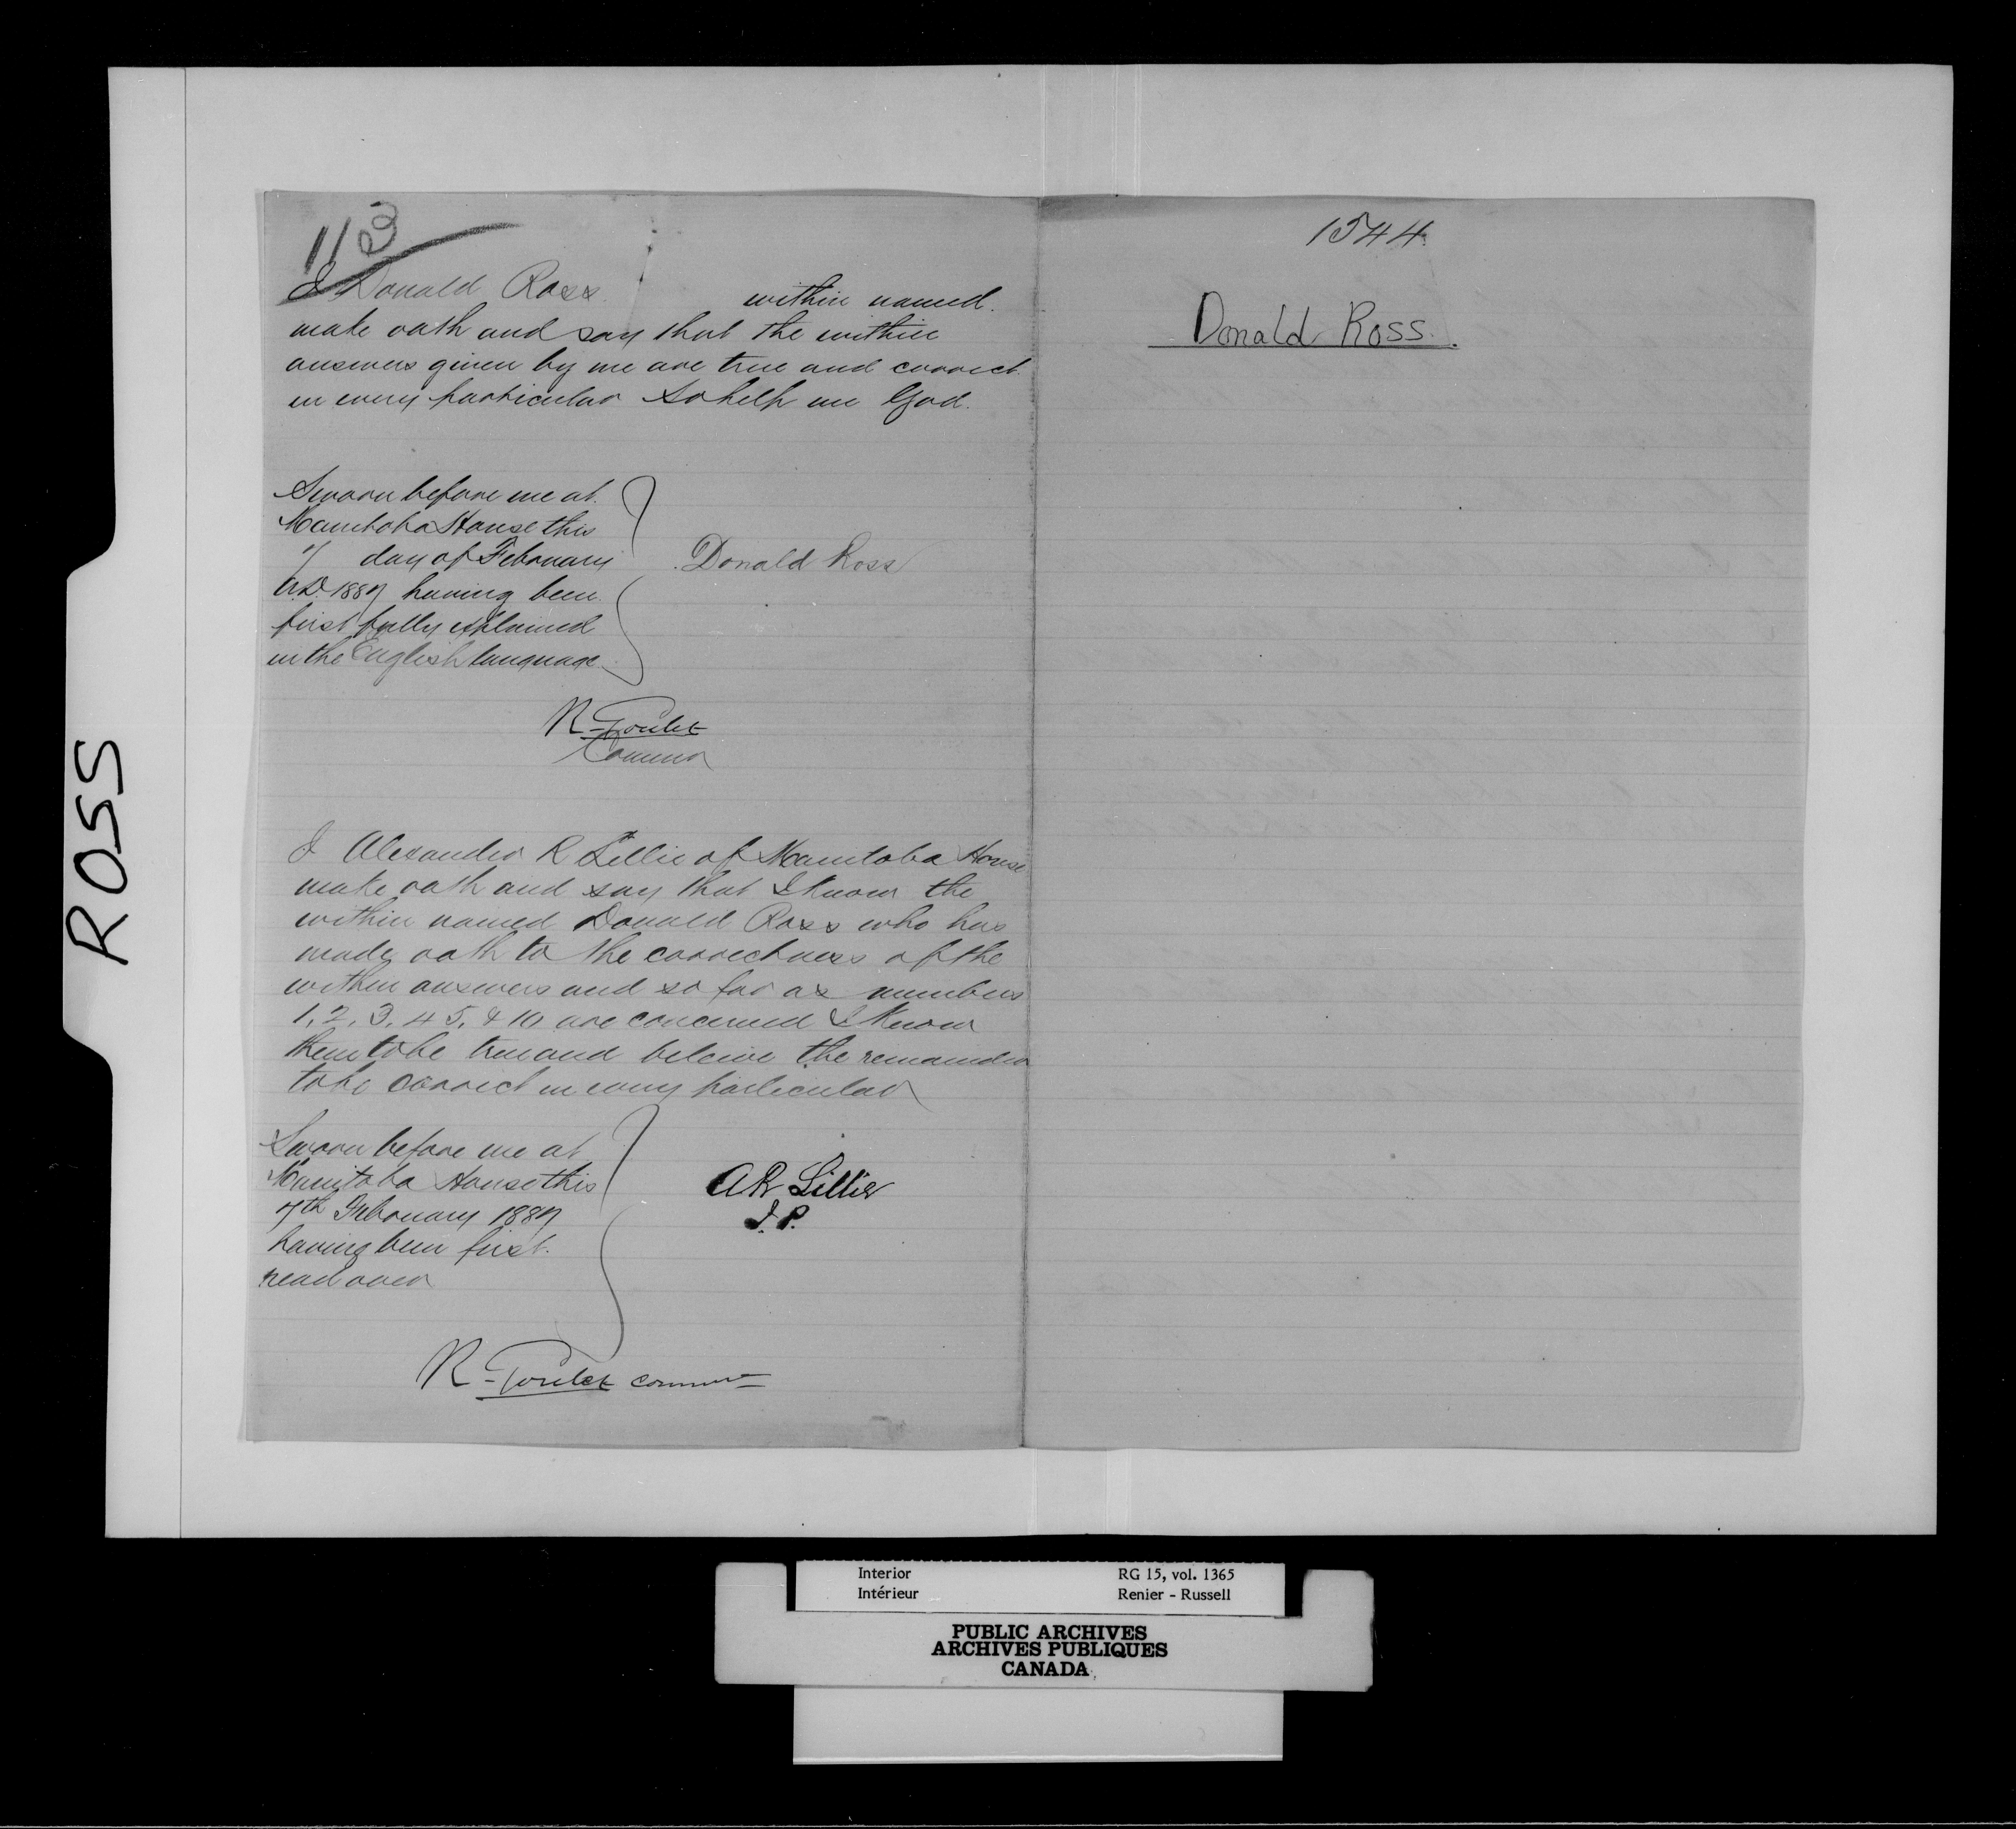 I Donald Ross within named.
make oath and say that the within
answers given by me are true and correct.
in every particular So help me God.
Sworn before me at.
Manitoba House this
7 day of February
A.D. 1887 having been
first fully explained
in the English language
Donald Ross
R Goulet
Commr
I Alexander R Lillie of Manitoba House
make oath and say that I know the
within named Donald Ross who has
made oath to the correctness of the
within answers and so far as numbers
1. 2. 3. 4 5. & 10 are concerned I know
them to be true and beleive the remainder
to be correct in every particular
Sworn before me at
Manitoba House this
7th February 1887
having been first.
read over
A R Lillie
J. P.
R Goulet commr
1544
Donald Ross.
ROSS
Interior RG 15, vol. 1365
Intérieur Renier - Russell
PUBLIC ARCHIVES
ARCHIVES PUBLIQUES
CANADA